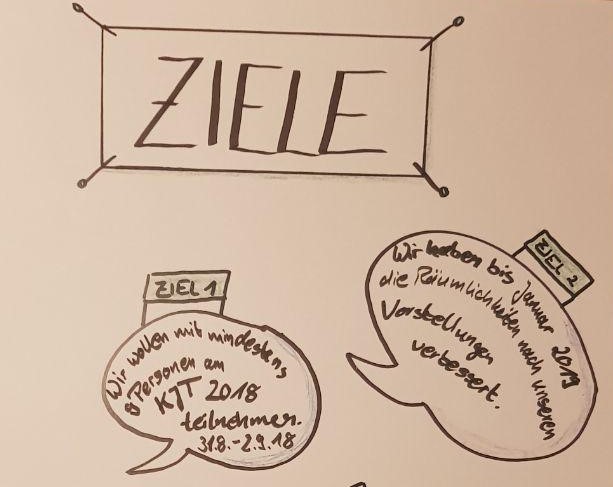 ZIELE
ZIEL 1
Wir wollen mit mindestens
8 Personen am
KJT 2018
teilnehmen.
31.8.-2.9.18
ZIEL 2
Wir haben bis Januar 2019
die Räumlichkeiten nach unseren
Vorstellungen
verbessert.